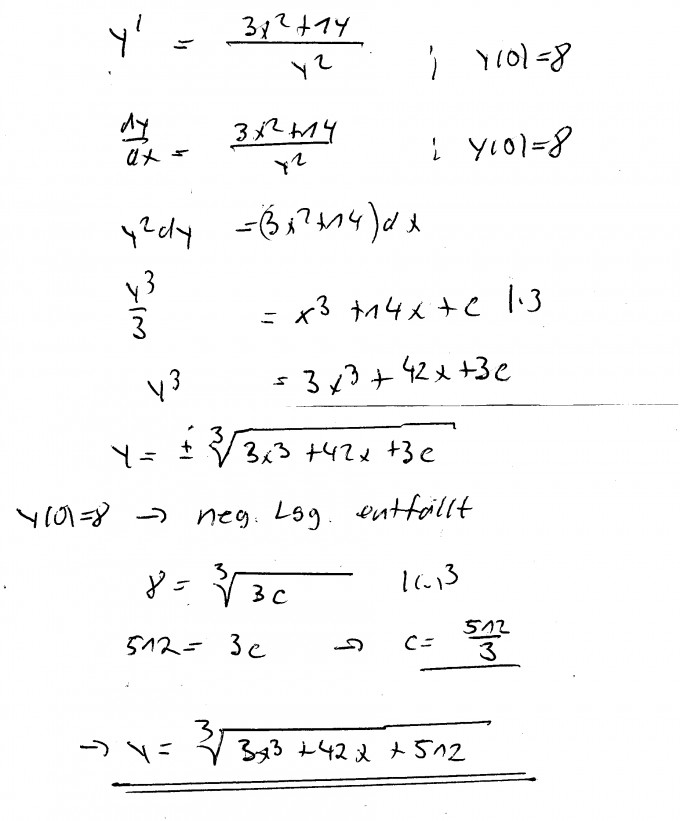 y' = (3x²+14)/y² ; y(0)=8
dy/dx = (3x²+14)/y² ; y(0)=8
y²dy = (3x²+14)dx
y³/3 = x³ +14x+c |·3
y³ = 3x³ + 42x +3c
y = ± ∛(3x³ +42x +3c)
y(0)=8 → neg. Lsg. entfällt
8 = ∛(3c) |(..)³
512 = 3c → c= 512/3
→ y = ∛(3x³ +42x +512)